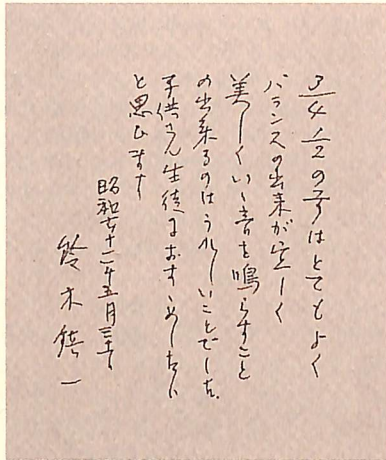 3/4 1/2の方はとてもよく
バランスの出来が宜しく
美しくいい音を鳴らすこと
の出来るのはうれしいことでした。
子供さん生徒におすゝめしたい
と思ひます
昭和五十二年五月三十日
鈴木鎮一